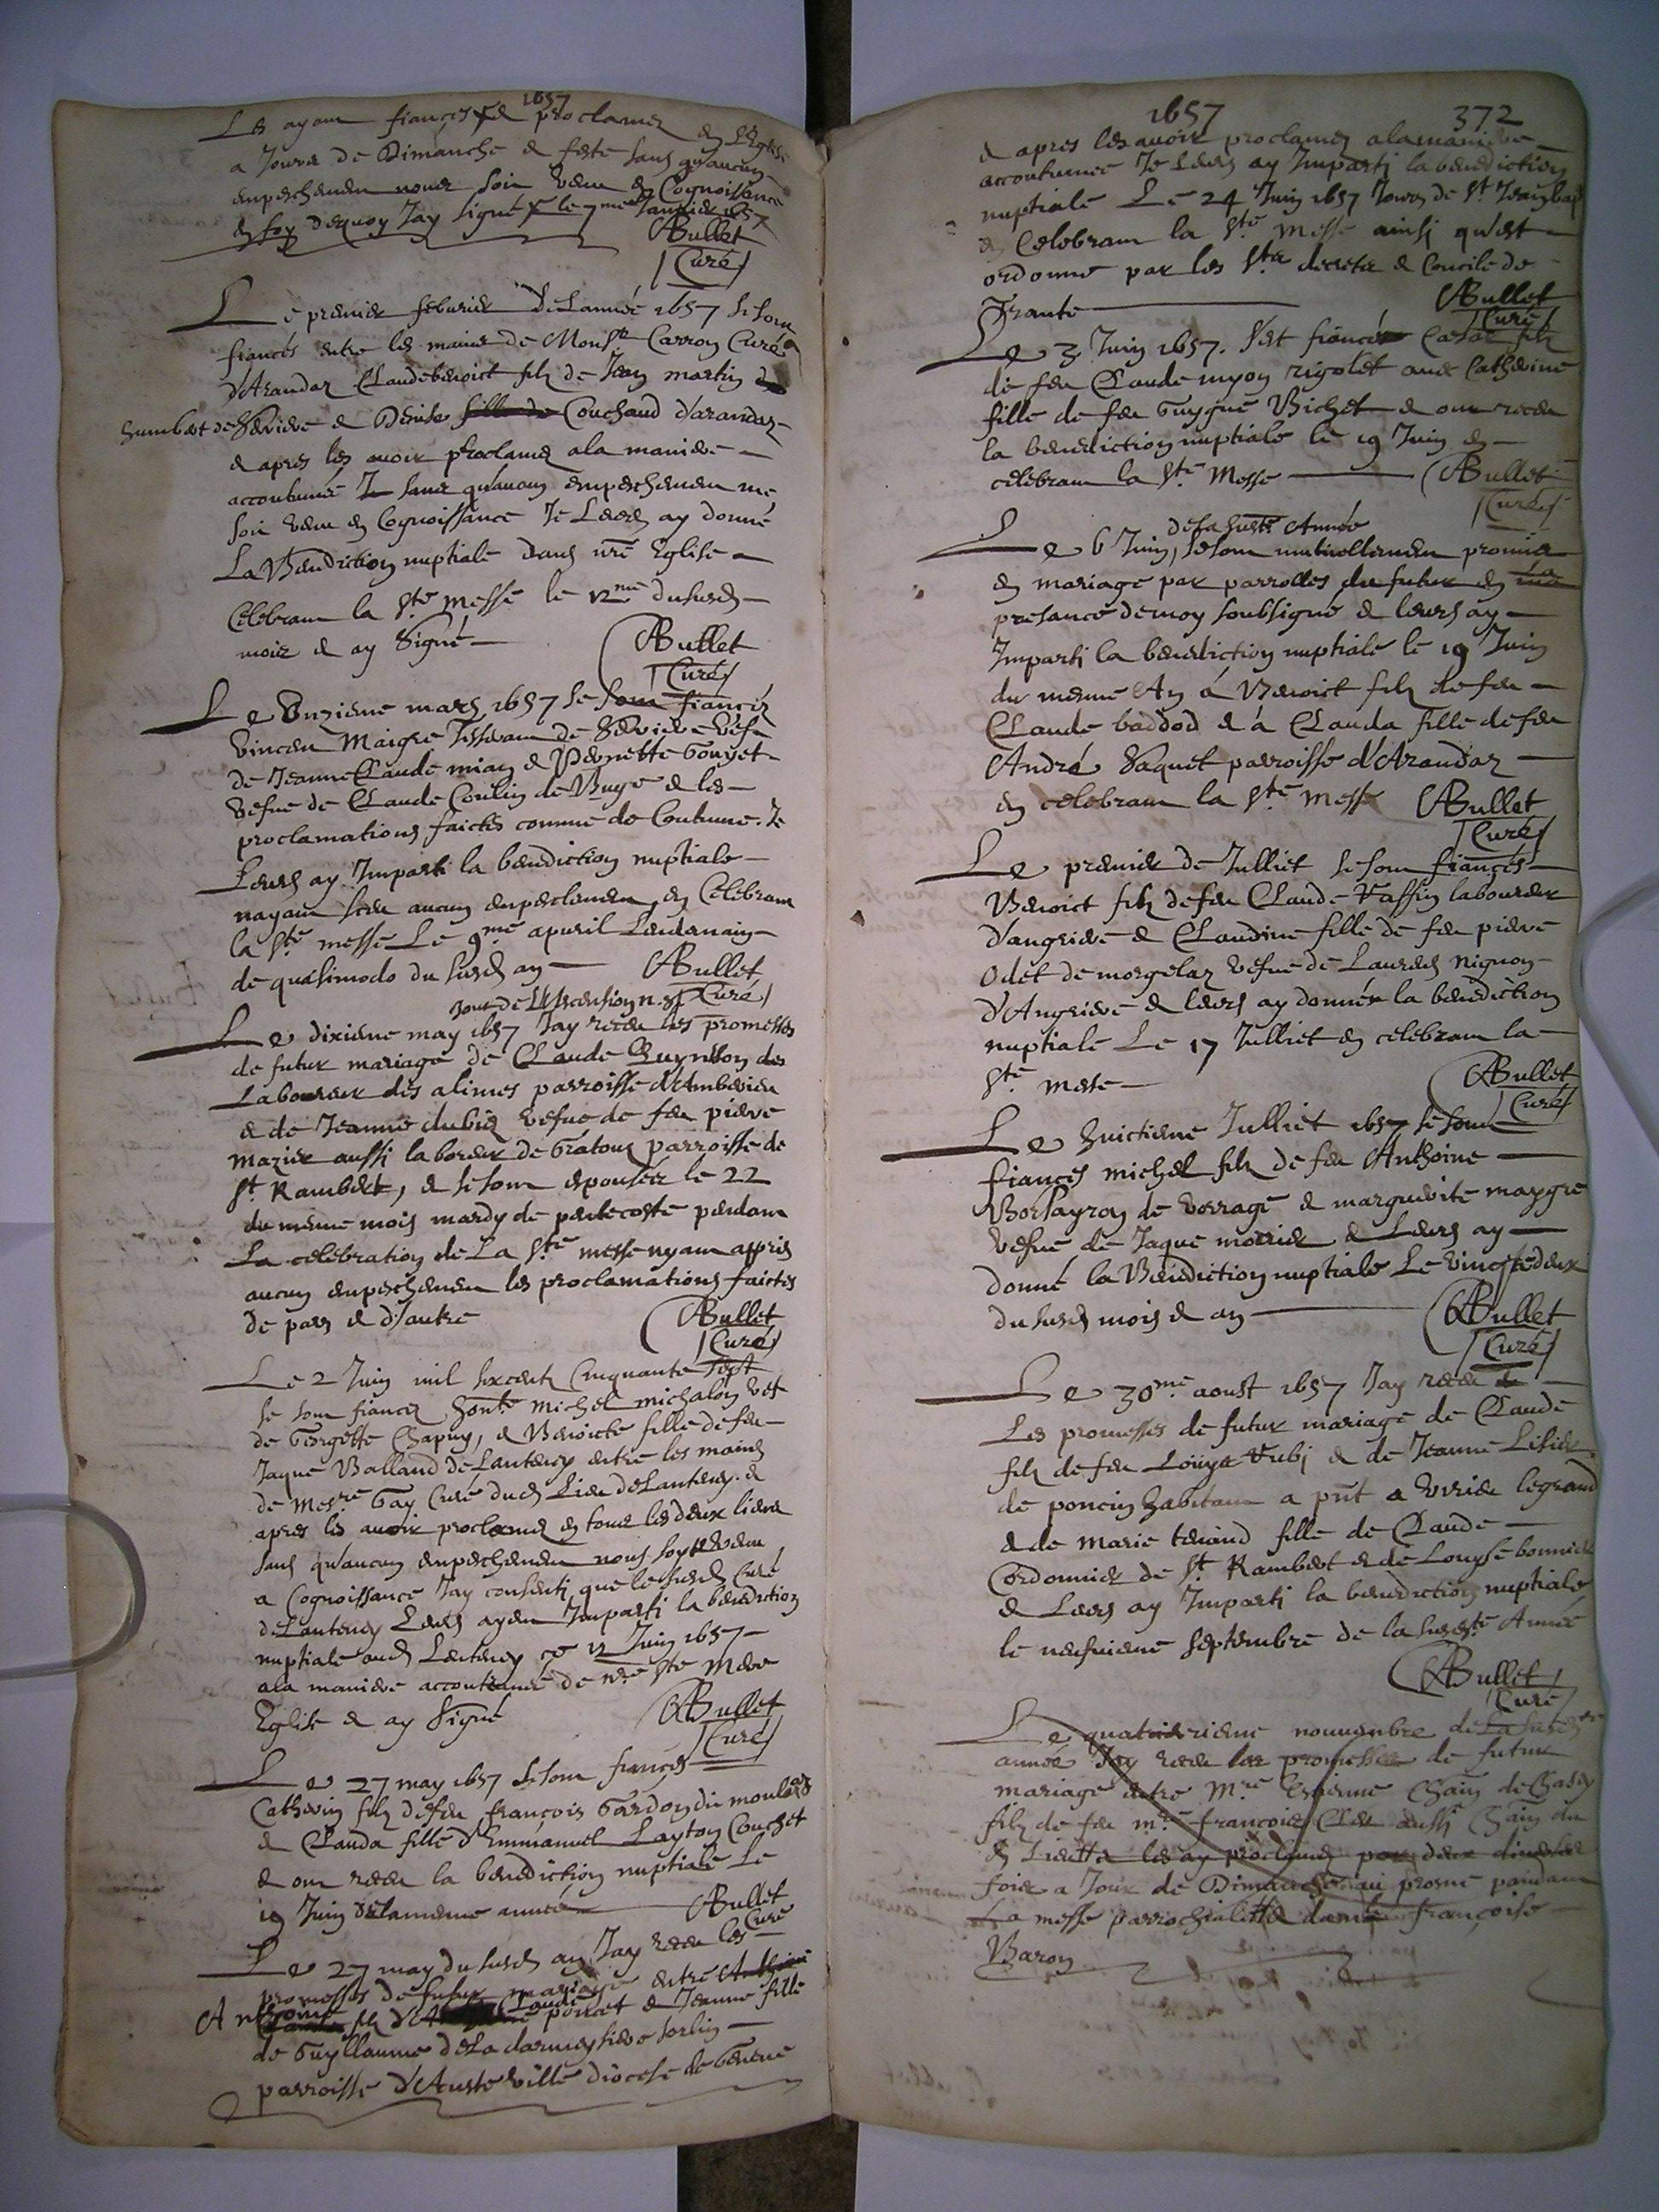 1657
Les ayant fiancés & proclamez en L'Eglise
a Jours de Dimanche & feste sans qu'aucun
empeschement nous soit venu en Cognoissance
en foy dequoy Jay signé le 7me Janvier 1657
ABullet
Curé
Le premier febvrier de L'année 1657 se sont
fiancés entre les mains de Monsr Carron Curé
d'Arandaz Claude benoict filz de Jean martin
humbert de & Denise fille de Couchaud d'arandaz
& apres les avoir proclamez a la maniere
accoutumée Je sans qu'aucun empeschement me
soit venu en Cognoissance Je Leurs ay donné
La Benediction nuptiale dans nre Eglise
Celebrant la Ste Messe le 12me dususd
mois & ay Signé
ABullet
Curé
Le Unzieme mars 1657 se sont fiancéz
Vincent Maigre Tisserant de vefe
de Jeanne Claude mian & Pernette Gouyet
vefue de Claude Coulin de Buge & les
proclamations faictes comme de Coutume. Je
Leurs ay Imparti la benediction nuptiale
nayant sceu aucun empeschement en Celebrant
la Ste messe Le 9me apuril Lendemain
de quasimodo du susd an ABullet
Curé
Jour de L'Ascension n. S.
Le dixieme may 1657 Jay receu les promesses
de futur mariage de Claude
Laboureur des alimes parroisse d'Amberieu
& de Jeanne dubie vefue de feu pierre
mazier aussi laboreur de Gratoux parroisse de
St Rambert, & se sont epousez le 22
du meme mois mardy de pentecoste pendant
La celebration de La Ste messe nyant appris
aucun empeschement les proclamations faictes
de part & d'autre ABullet
Curé
Le 2 Juin mil sixcents Cinquante sept
se sont fiancez honte Michel michalon vef
de Georgette Chapuy, & Benoicte fille de feu
Jaque Balland de Lanteney entre les mains
de Messre Gay Curé dud Lieu de Lanteney. &
apres les avoir proclamez en tous les deux lieux
sans qu'aucun empeschement nous soyt venu
a Cognoissance Jay consenti que le susd Curé
de Lanteney Leurs ayt Imparti la benediction
nuptiale aud Lanteney ce 12 Juin 1657
a la maniere accoutumée de nre Ste Mere
Eglise & ay Signé ABullet
Curé
Le 27 may 1657 se sont fiancés
Catherin filz defeu françois Gardon du moulard
& Clauda fille d'Emmanuel Layton Couchet
& ont receu la benediction nuptiale Le
19 Juin de la meme année ABullet
Curé
Le 27 may du susd an Jay receu les
promesses de futur mariage entre Anthoine
Anthoine filz d' Claude poncet & Jeanne fille
de Guyllaume de La sorlin
parroisse d' ville diocese de Geneve
1657 372
& apres les avoir proclamez a la maniere
accoutumée Je Leurs ay Imparti la benediction
nuptiale Le 24 Juin 1657 Jours de St Jean bap
en Celebrant la Ste Messe ainsi qu'est
ordonné par les Sts decrets & Concile de
Trante ABullet
Curé
Le 3 Juin 1657. S'est fiancés Caesar filz
de feu Claude myon rigolet avec Catherine
fille de feu Guygne Bichet & ont receu
la benediction nuptiale le 19 Juin en
celebrant la Ste Messe ABullet
Curé
de la suste Année
Le 6 Juin, se sont mutuellement promis
en mariage par parrolles du futur en
presance de moy soubsigné & leurs ay
Imparti la benediction nuptiale le 19 Juin
du mesme An á Benoict filz de feu
Claude baddod & á Clauda fille de feu
André Saquet parroisse d'Arandaz
en celebrant la Ste Messe ABullet
Curé
Le premier de Julliet se sont fiancés
Benoict filz de feu Claude Taffin laboureur
d'angrieve & Claudine fille de feu pierre
Odet de morgelaz vefue de Laurens nignon
d'Angrieve & leurs ay donnée la benediction
nuptiale Le 17 Julliet en celebrant la
Ste messe ABullet
Curé
Le huictieme Julliet 1657 se sont
fiancés michel filz de feu Anthoine
de & marguerite maygre
vefue de Jaque & Leurs ay
donné la Benediction nuptiale Le vingtedeux
du susd mois & an ABullet
Curé
Le 30me aoust 1657 Jay receu
Les promesses de futur mariage de Claude
filz de feu Loüys & de Jeanne
de poncin habitant a pnt a Virieu legrand
& de Marie fille de Claude
Cordonnier de St Rambert & de Louyse bonnier
& Leurs ay Imparti la benediction nuptiale
le neufvieme Septembre de la susdte Année
ABullet
Curé
Le nouvembre de La susdte
année Jay receu les promesses de futur
mariage entre Mre Estienne de
filz de feu mre françois aussi
les ay proclamez par deux diverses
fois a Jour de Dimanche au prosne pendant
La messe parrochiale françoise
Baron